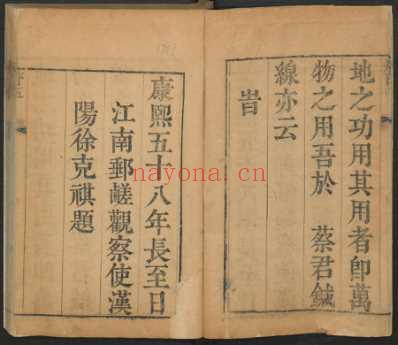 地之功用其用者卽萬
物之用吾於 蔡君鍼
線亦云
旹
康熙五十八年長至日
江南郵鹺觀察使漢
陽徐克祺題
nayona.cn